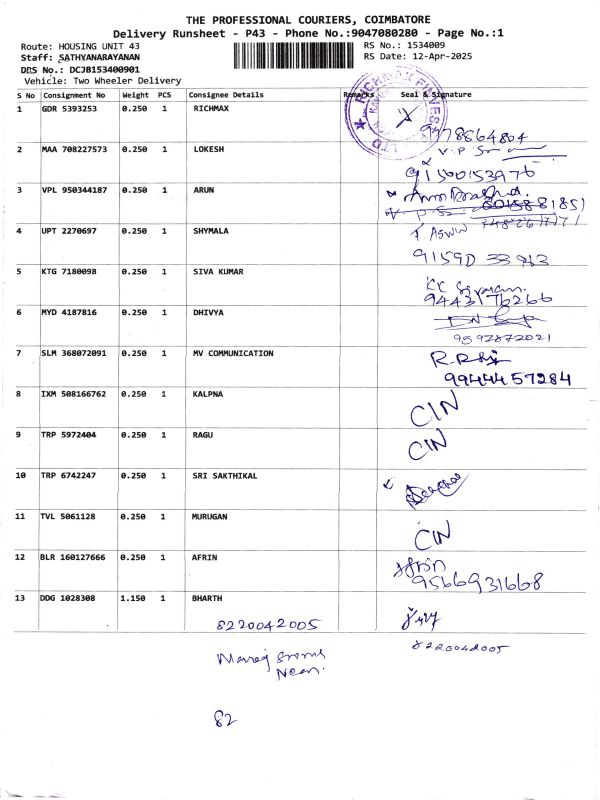 THE PROFESSIONAL COURIERS, COIMBATORE
Delivery Runsheet - P43 - Phone No.:9047080280 - Page No.:1
Route: HOUSING UNIT 43 RS No.: 1534009
Staff: SATHYANARAYANAN RS Date: 12-Apr-2025
DRS No.: DCJB153400901
Vehicle: Two Wheeler Delivery
S No Consignment No Weight PCS Consignee Details Remarks Seal & Signature
1 GDR 5393253 0.250 1 RICHMAX
RICHMAX
9778864804
2 MAA 708227573 0.250 1 LOKESH
V. P.
91500153976
3 VPL 950344187 0.250 1 ARUN
4 UPT 2270697 0.250 1 SHYMALA
ASWIN
5 KTG 7180098 0.250 1 SIVA KUMAR
KK
9443176266
6 MYD 4187816 0.250 1 DHIVYA
9597872021
7 SLM 368072091 0.250 1 MV COMMUNICATION
9944457284
8 IXM 508166762 0.250 1 KALPNA
CIN
9 TRP 5972404 0.250 1 RAGU
CIN
10 TRP 6742247 0.250 1 SRI SAKTHIKAL
11 TVL 5061128 0.250 1 MURUGAN
CIN
12 BLR 160127666 0.250 1 AFRIN
Afrin
9566931668
13 DDG 1028308 1.150 1 BHARTH
8220042005
8220042005
82